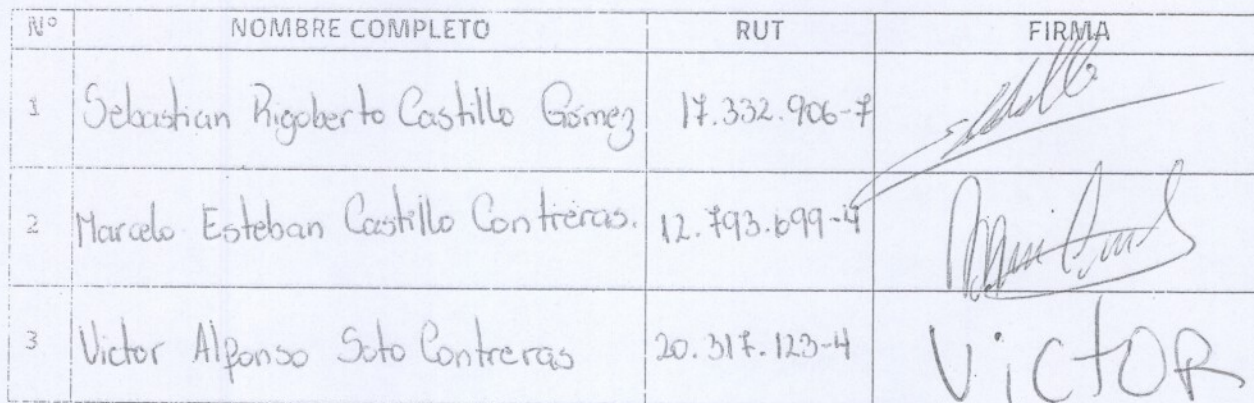 Nº NOMBRE COMPLETO RUT FIRMA
1 Sebastian Rigoberto Castillo Gómez 17.332.906-7
2 Marcelo Esteban Castillo Contreras. 12.793.699-4
3 Victor Alfonso Soto Contreras 20.317.123-4 VictOR